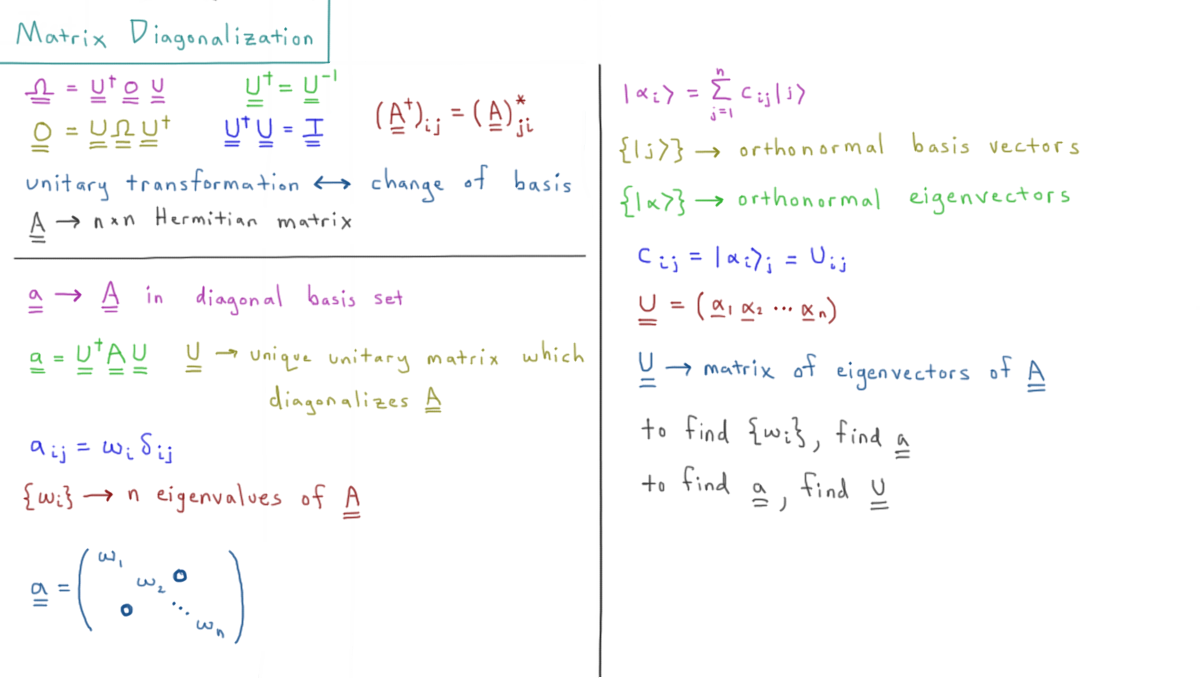 Matrix Diagonalization
Ω = U† O U    U† = U⁻¹
O = U Ω U†    U† U = I    (A†)ᵢⱼ = (A)*ⱼᵢ
unitary transformation ↔ change of basis
A → n×n Hermitian matrix
a → A in diagonal basis set
a = U† A U    U → unique unitary matrix which
diagonalizes A
aᵢⱼ = ωᵢ δᵢⱼ
{ωᵢ} → n eigenvalues of A
a = ( ω₁ ω₂ ⋱ ωₙ ) 0 0
|αᵢ⟩ = Σⱼ₌₁ⁿ cᵢⱼ |j⟩
{|j⟩} → orthonormal basis vectors
{|α⟩} → orthonormal eigenvectors
cᵢⱼ = |αᵢ⟩ⱼ = Uᵢⱼ
U = (α₁ α₂ ⋯ αₙ)
U → matrix of eigenvectors of A
to find {ωᵢ}, find a
to find a, find U